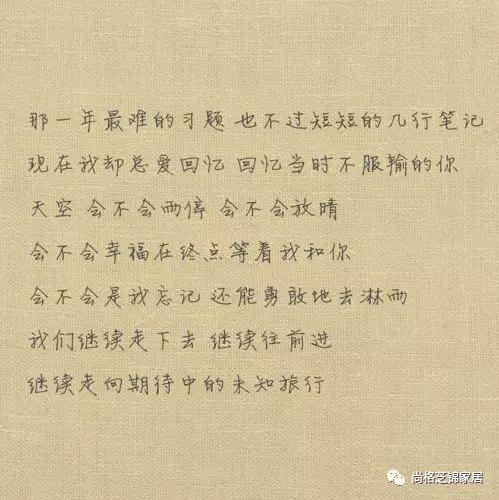 那一年最难的习题 也不过短短的几行笔记
现在我却总爱回忆 回忆当时不服输的你
天空 会不会雨停 会不会放晴
会不会幸福在终点等着我和你
会不会是我忘记 还能勇敢地去淋雨
我们继续走下去 继续往前进
继续走向期待中的未知旅行
尚格芝锦家居